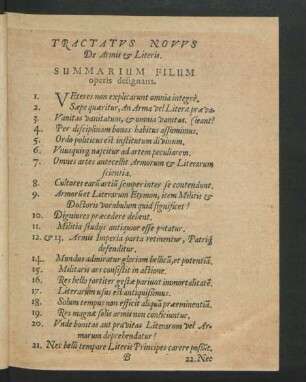 TRACTATVS NOVVS
De Armis & Literis.
SUMMARIUM FILUM
operis designans.
1. VEteres non explicarunt omnia integrè.
2. Sæpe quæritur, An Arma vel Litera præva-
3. Vanitas vanitatum, & omnia vanitas. (leant?
4. Per disciplinam bonos habitus assumimus.
5. Ordo politicus est institutum divinum.
6. Vnusquisq; nascitur ad artem peculiarem.
7. Omnes artes antecellit Armorum & Literarum
scientia.
8. Cultores earũ artiũ semper inter se contendunt.
9. Armorũ et Literarum Etymon, item Militis &
Doctoris vocabulum quid significet?
10. Digniores præcedere debent.
11. Militia studiis antiquior esse putatur.
12. & 13. Armis Imperia parta retinentur, Patriq́;
defenditur.
14. Mundus admiratur gloriam bellicã, et potentiã.
15. Militaris ars consistit in actione.
16. Res bello fortiter gestæ pariunt immortalitatẽ.
17. Literarum usus est antiquissimus.
18. Solum tempus non efficit aliquã præeminentiã.
19. Res magnæ solis armis non conficiuntur.
20. Vnde bonitas aut pravitas Literarum vel Ar-
morum deprehendatur?
21. Nec belli tempore Literis Principes carere posse.
B 22. Nec